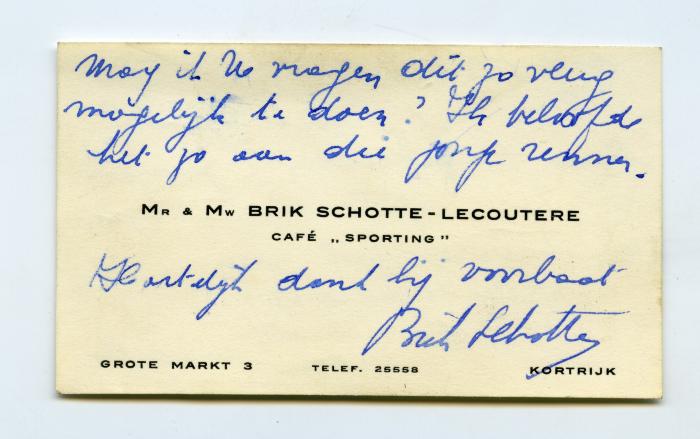 Mag ik U vragen dit zo vlug
mogelijk te doen? Ik beloofde
het zo aan die jonge renner.
Mr & Mw BRIK SCHOTTE-LECOUTERE
CAFÉ „SPORTING”
Hartelijk dank bij voorbaat
Brik Schotte
GROTE MARKT 3 TELEF. 25558 KORTRIJK